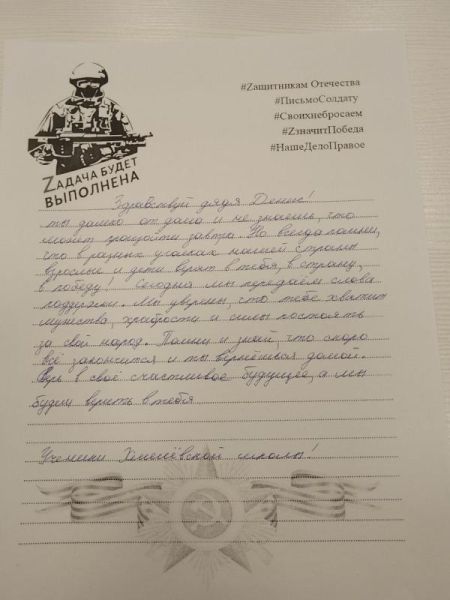 #Zащитникам Отечества
#ПисьмоСолдату
#Своихнебросаем
#ZзначитПобеда
#НашеДелоПравое
ZАДАЧА БУДЕТ
ВЫПОЛНЕНА
Здравствуй дядя Денис!
ты далеко от дома и не знаешь, что
может произойти завтра. Но всегда помни,
что в разных уголках нашей страны
взрослые и дети верят в тебя, в страну,
в победу! Сегодня мы передаём слова
поддержки. Мы уверены, что тебе хватит
мужества, храбрости и силы постоять
за свой народ. Помни и знай, что скоро
всё закончится и ты вернёшься домой.
Верь в своё счастливое будущее, а мы
будем верить в тебя
Ученики школы!